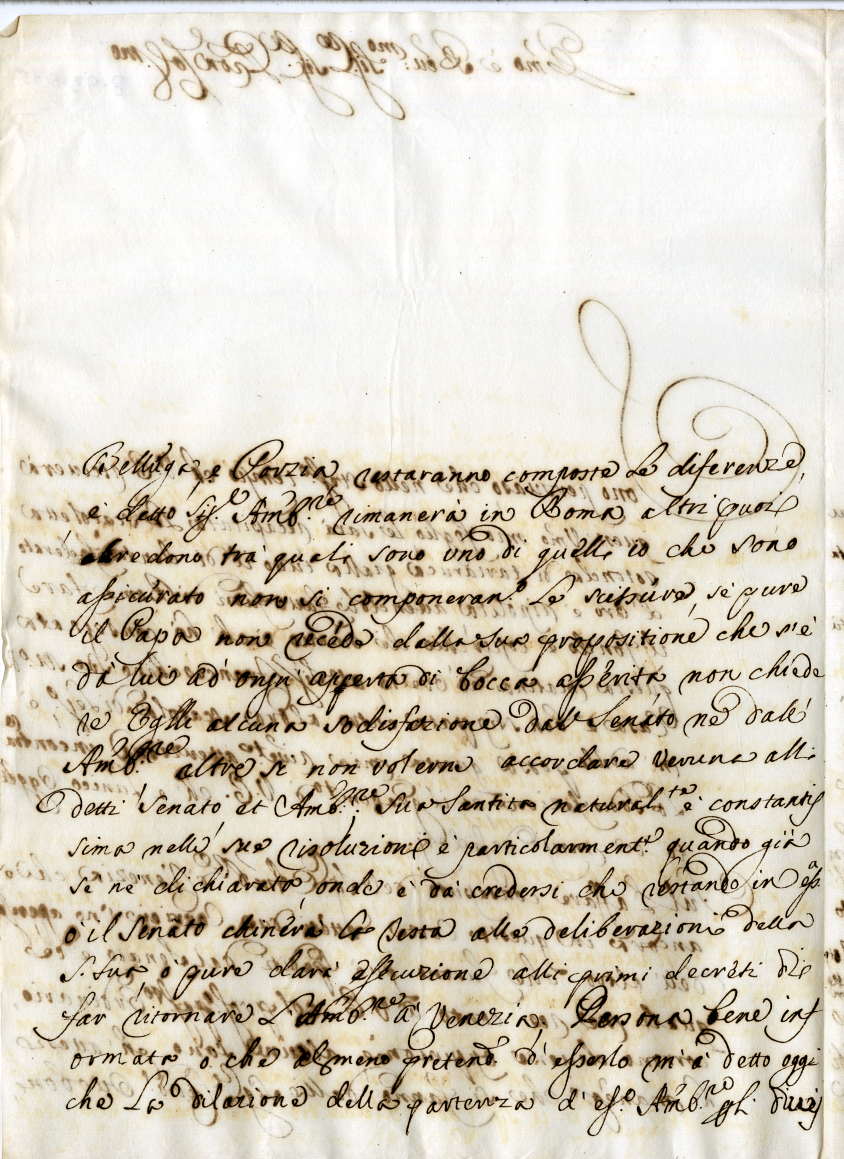 Belluga, e Porzia restaranno composte le diferenze,
e detto Sig.r Amb.re rimanerà in Roma altri puoi
credono, tra quali sono uno di quelli io che sono
assicurato non si componeran.o le scissure, se pure
il Papa non recede dalla sua propositione che s'è
da lui ad ogn' apperta di bocca asserita non chiede
re Eglli alcuna sodisfazione dal Senato ne dall'
Amb.re altre si non volerne accordare veruna alli
detti Senato et Amb.re; Sua Santita natural.te è constantis
sima nelle sue risoluzioni e particolarment.e quando già
se ne dichiarato, onde è da credersi che restando in ess.a
o il Senato chinerà la testa alle deliberazioni della
S. Sua o pure darà essecuzione alli primi decreti di
far ritornare L'Amb.re a Venezia; Persona bene inf
ormata o che almeno pretend.e d'esserlo m'à detto oggi
che La dilazione della partenza d'ess.o Amb.re gli